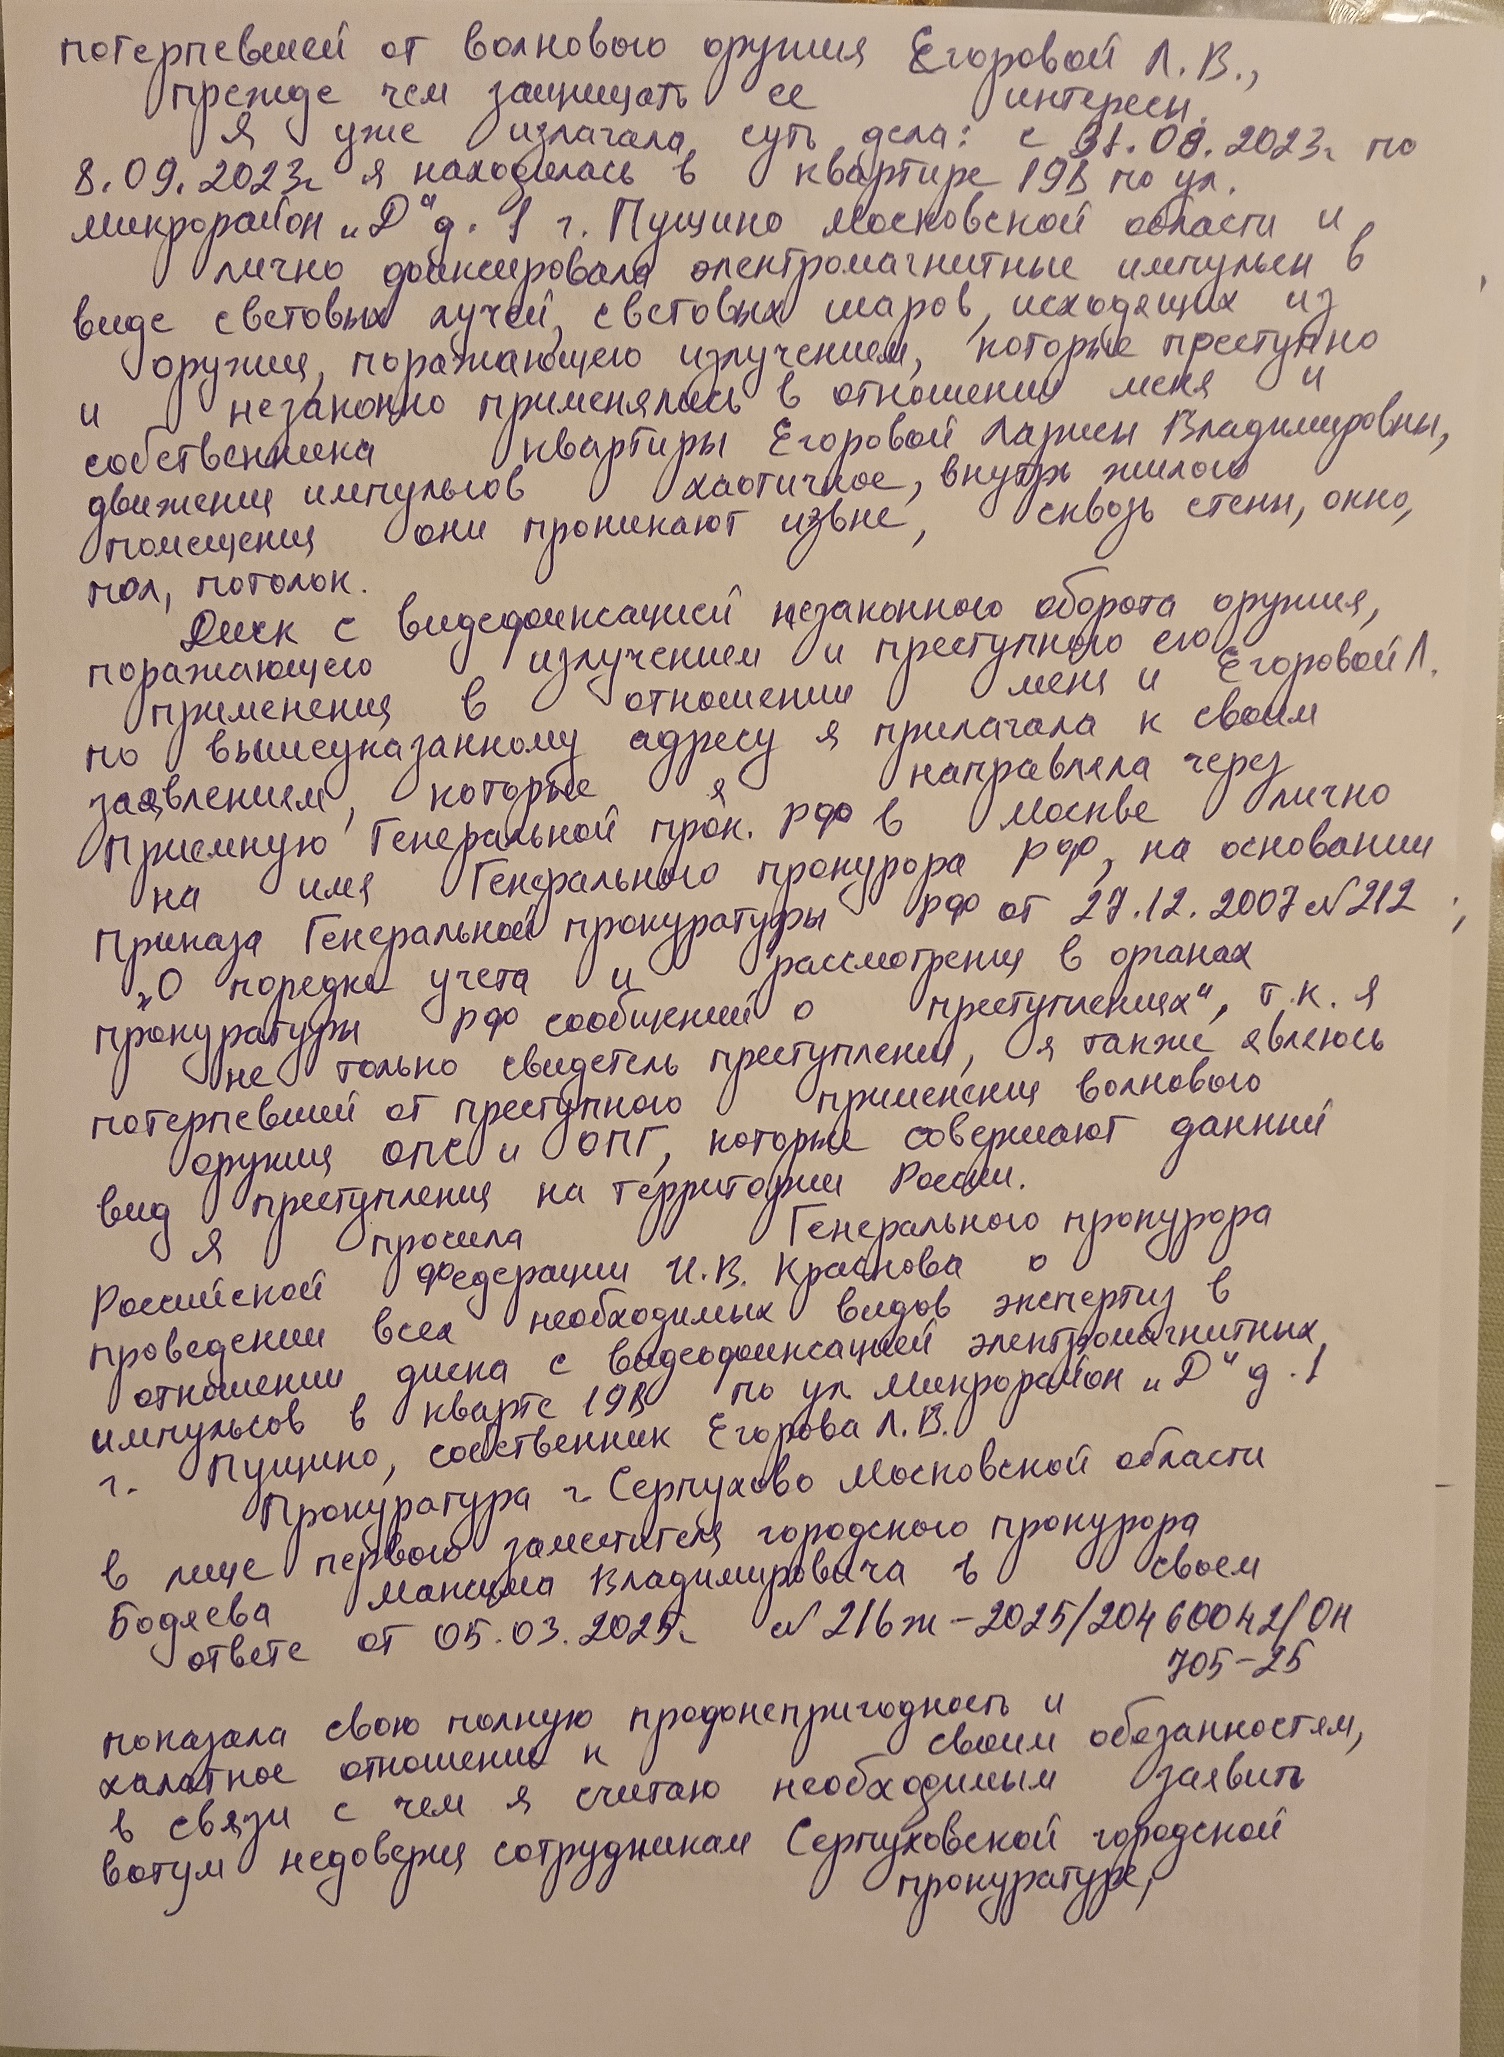 потерпевшей от волнового оружия Егоровой Л.В.,
прежде чем защищать ее интересы.
Я уже излагала суть дела: с 31.08.2023г по
8.09.2023г я находилась в квартире 19В по ул.
микрорайон „Д“ д. 1 г. Пущино Московской области и
лично фоиксировала электромагнитные импульсы в
виде световых лучей, световых шаров, исходящих из
оружия, поражающего излучением, которые преступно
и незаконно применялись в отношении меня и
собственника квартиры Егоровой Ларисы Владимировны,
движения импульсов хаотичное, внутрь жилого
помещения они проникают извне, сквозь стены, окно,
пол, потолок.
Диск с видеофиксацией незаконного оборота оружия,
поражающего излучением и преступного его
применения в отношении меня и Егоровой Л.
по вышеуказанному адресу я прилагала к своим
заявлениям, которые я направляла через
Приемную Генеральной прок. РФ в Москве лично
на имя Генерального прокурора РФ, на основании
Приказа Генеральной прокуратуры РФ от 27.12.2007 №212
„О порядке учета и рассмотрения в органах
прокуратуры РФ сообщений о преступлениях“, т.к. я
не только свидетель преступления, я также являюсь
потерпевшей от преступного применения волнового
оружия ОПС и ОПГ, которые совершают данный
вид преступления на территории России.
Я просила Генерального прокурора
Российской Федерации И.В. Краснова о
проведении всех необходимых видов экспертиз в
отношении диска с видеофиксацией электромагнитных
импульсов в кварте 19В по ул микрорайон „Д“ д. 1
г. Пущино, собственник Егорова Л.В.
Прокуратура г. Серпухово Московской области
в лице первого заместителя городского прокурора
Бодяева Максима Владимировича в своем
ответе от 05.03.2025г №216ж-2025/20460042/Он
705-25
показала свою полную профонепригодность и
халатное отношение к своим обязанностям,
в связи с чем я считаю необходимым заявить
вотум недоверия сотрудникам Серпуховской городской
прокуратуре,